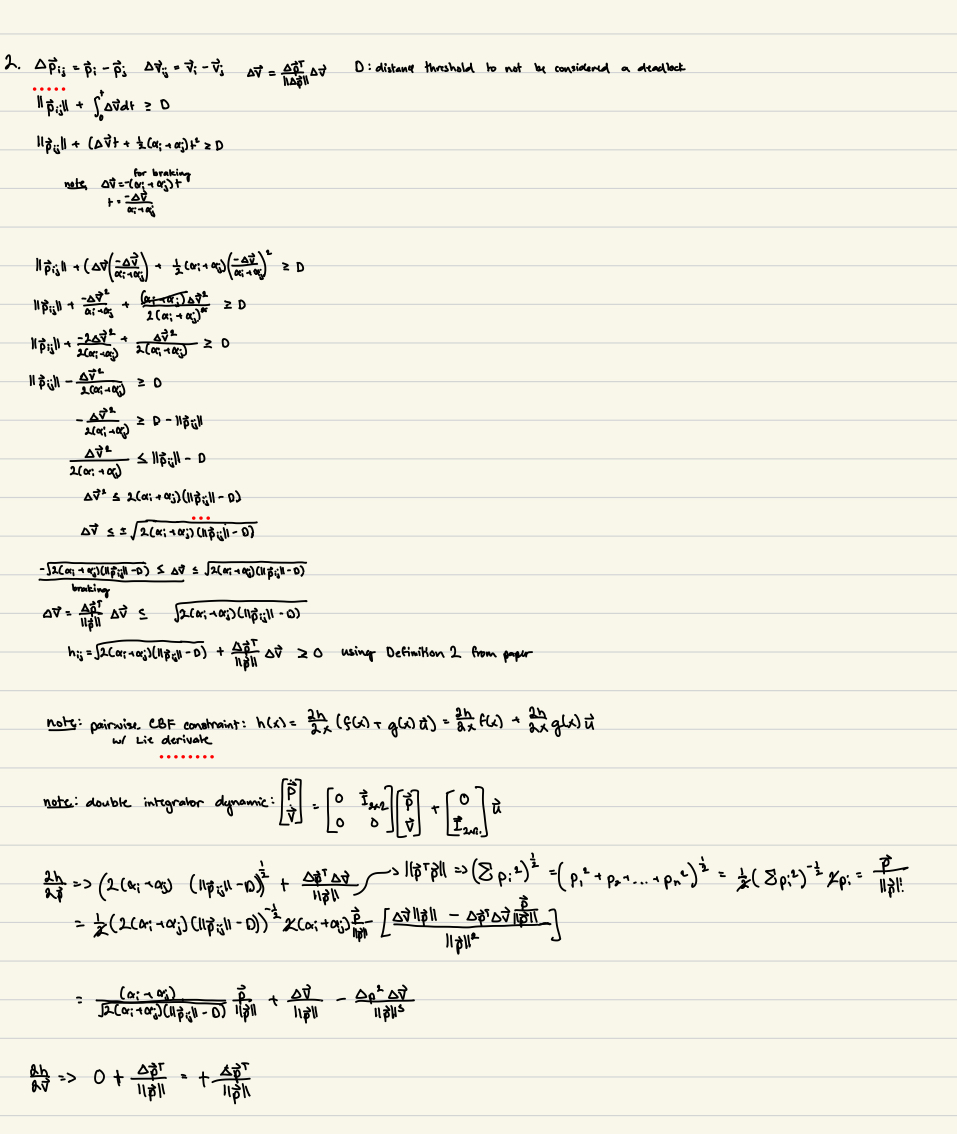 2. Δp⃗ᵢⱼ = p⃗ᵢ - p⃗ⱼ  Δv⃗ᵢⱼ = v⃗ᵢ - v⃗ⱼ  Δv̄ = Δp⃗ᵀ/||Δp⃗|| Δv⃗  D: distance threshold to not be considered a deadlock
||p⃗ᵢⱼ|| + ∫₀ᵗ Δv̄ dt ≥ D
||p⃗ᵢⱼ|| + (Δv̄t + ½(αᵢ+αⱼ)t² ≥ D
for braking
note, Δv̄ = -(αᵢ+αⱼ)t
t = -Δv̄/(αᵢ+αⱼ)
||p⃗ᵢⱼ|| + (Δv̄(-Δv̄/(αᵢ+αⱼ)) + ½(αᵢ+αⱼ)(-Δv̄/(αᵢ+αⱼ))² ≥ D
||p⃗ᵢⱼ|| + -Δv̄²/(αᵢ+αⱼ) + (αᵢ+αⱼ)Δv̄²/2(αᵢ+αⱼ)² ≥ D
||p⃗ᵢⱼ|| + -2Δv̄²/2(αᵢ+αⱼ) + Δv̄²/2(αᵢ+αⱼ) ≥ D
||p⃗ᵢⱼ|| - Δv̄²/2(αᵢ+αⱼ) ≥ D
-Δv̄²/2(αᵢ+αⱼ) ≥ D - ||p⃗ᵢⱼ||
Δv̄²/2(αᵢ+αⱼ) ≤ ||p⃗ᵢⱼ|| - D
Δv̄² ≤ 2(αᵢ+αⱼ)(||p⃗ᵢⱼ|| - D)
Δv̄ ≤ ±√(2(αᵢ+αⱼ)(||p⃗ᵢⱼ|| - D))
-√(2(αᵢ+αⱼ)(||p⃗ᵢⱼ|| - D)) ≤ Δv̄ ≤ √(2(αᵢ+αⱼ)(||p⃗ᵢⱼ|| - D))
braking
Δv̄ = Δp⃗ᵀ/||p⃗|| Δv⃗ ≤ √(2(αᵢ+αⱼ)(||p⃗ᵢⱼ|| - D))
hᵢⱼ = √(2(αᵢ+αⱼ)(||p⃗ᵢⱼ|| - D)) + Δp⃗ᵀ/||p⃗|| Δv⃗ ≥ 0 using Definition 2 from paper
note: pairwise CBF constraint: h(x) = ∂h/∂x (f(x) + g(x)u⃗) = ∂h/∂x f(x) + ∂h/∂x g(x)u⃗
w/ Lie derivate
note: double integrator dynamic: [p⃗̇; v⃗̇] = [0 I⃗₂ₓ₂; 0 0][p⃗; v⃗] + [0; I⃗₂ₓ₂]u⃗
∂h/∂p⃗ => (2(αᵢ+αⱼ) (||p⃗ᵢⱼ|| - D))^½ + Δp⃗ᵀΔv⃗/||p⃗|| → ||p⃗ᵀp⃗|| => (Σpᵢ²)^½ = (p₁² + p₂ + ... + pₙ²)^½ = ½(Σpᵢ²)^-½ 2pᵢ = p⃗/||p⃗||
= ½(2(αᵢ+αⱼ)(||p⃗ᵢⱼ|| - D))^-½ 2(αᵢ+αⱼ) p⃗/||p⃗|| - [(Δv⃗||p⃗|| - Δp⃗ᵀΔv⃗ p⃗/||p⃗||)/||p⃗||²]
= (αᵢ+αⱼ)/√(2(αᵢ+αⱼ)(||p⃗ᵢⱼ|| - D)) p⃗/||p⃗|| + Δv⃗/||p⃗|| - Δp²Δv⃗/||p⃗||³
∂h/∂v⃗ => 0 + Δp⃗ᵀ/||p⃗|| = + Δp⃗ᵀ/||p⃗||